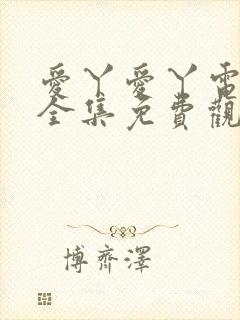 愛丫愛丫電
全集免費觀
博齊澤